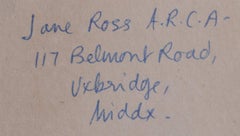 Jane Ross A.R.C.A-
117 Belmont Road,
Uxbridge,
Middx.